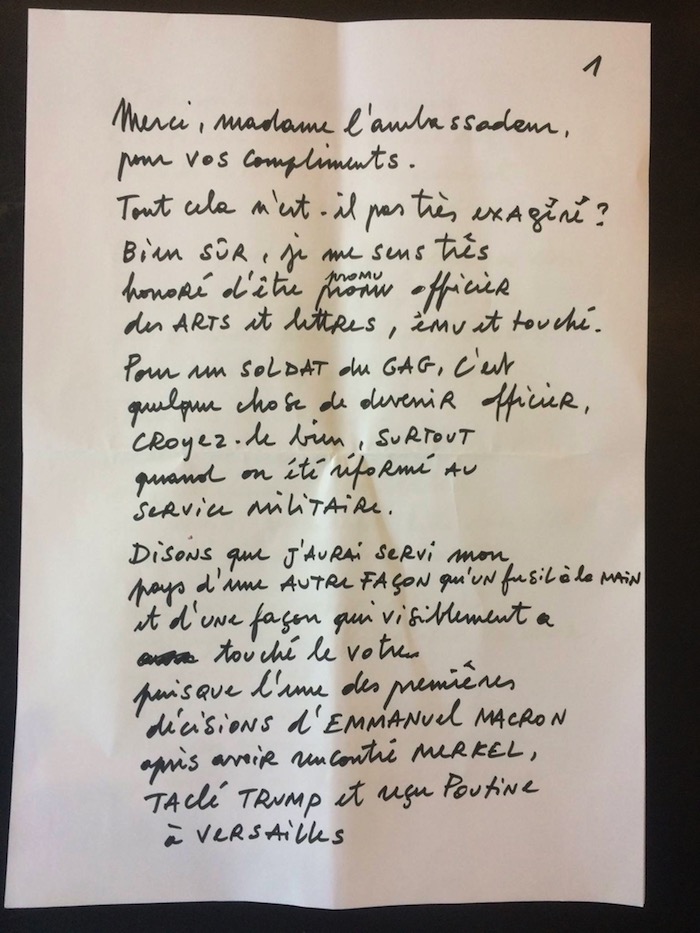 1
Merci, madame l'ambassadeur,
pour vos compliments.
Tout cela n'est-il pas très exagéré?
Bien sûr, je me sens très
promu
honoré d'être promu officier
des ARTS et lettres, ému et touché.
Pour un SOLDAT du GAG, c'est
quelque chose de devenir officier,
CROYEZ-le bien, SURTOUT
quand on été réformé AU
service militaire.
Disons que j'aurai servi mon
pays d'une AUTRE FAÇON qu'un fusil à la MAIN
et d'une façon qui visiblement a
touché le votre
puisque l'une des premières
décisions d'EMMANUEL MACRON
après avoir rencontré MERKEL,
TAClé TRUMP et reçu Poutine
à VERSAILLES